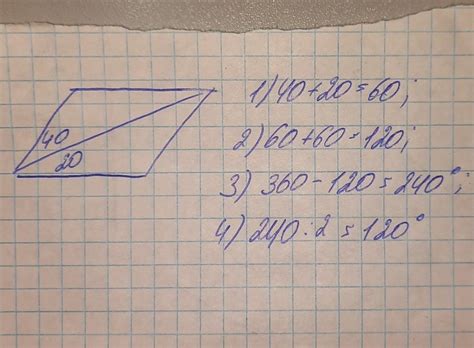 40
20
1) 40+20=60;
2) 60+60=120;
3) 360-120=240°;
4) 240:2=120°